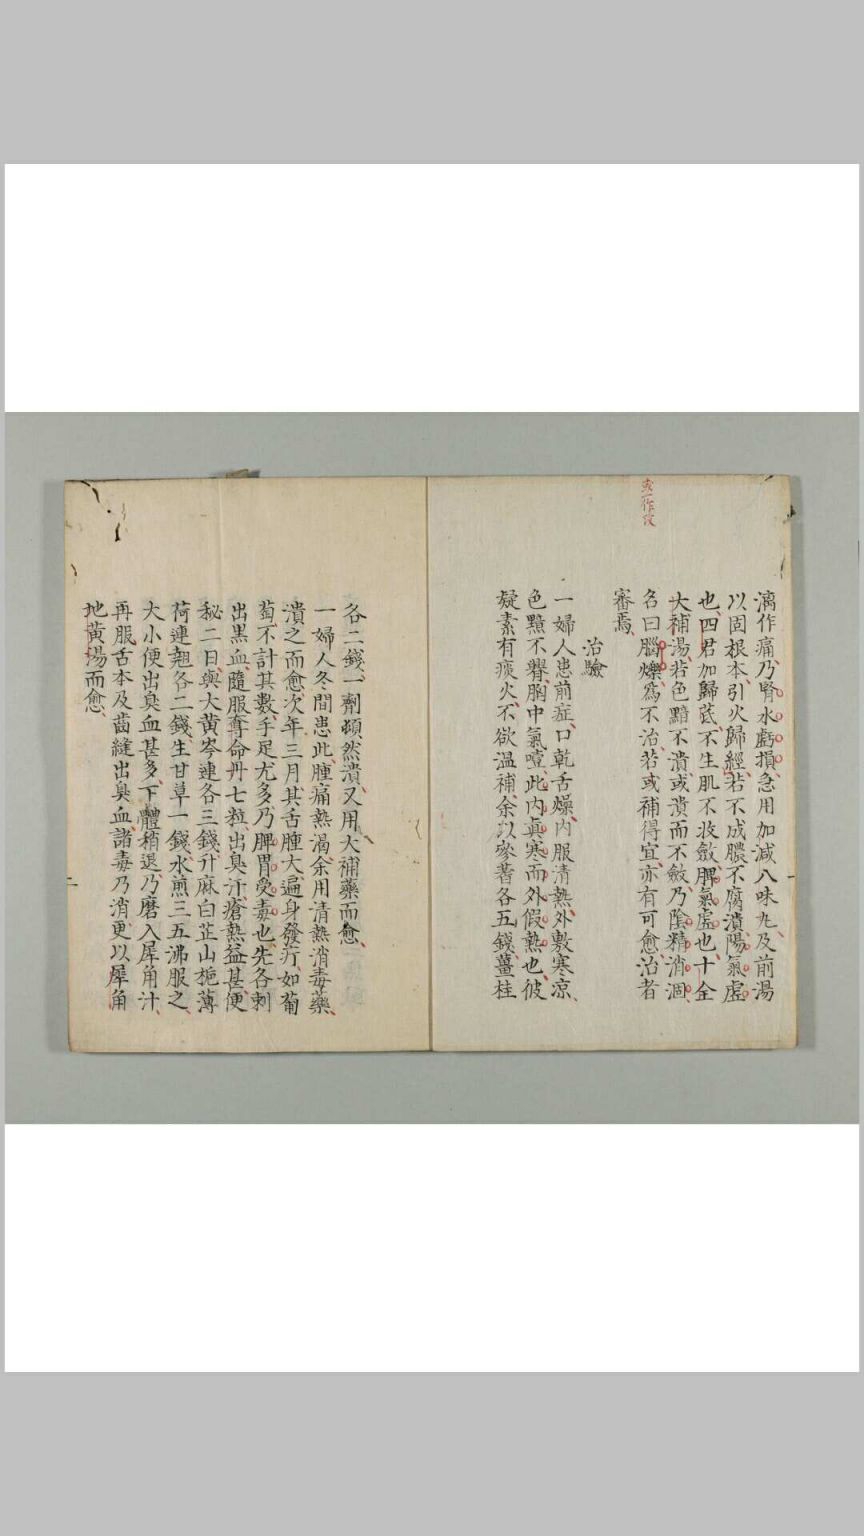 漓作痛乃腎水虧損急用加減八味丸及前湯
以固根本引火歸經若不成膿不腐潰陽氣虛
也四君加歸芪不生肌不收斂脾氣虛也十全
大補湯若色黯不潰或潰而不斂乃陰精消涸
名曰腦爍為不治若或補得宜亦有可愈治者
審焉
治驗
一婦人患前症口乾舌燥內服清熱外敷寒凉
色黯不礬胸中氣噎此內真寒而外假熱也彼
凝素有痰火不欲温補余以參蓍各五錢薑桂
各二錢一劑頓然潰又用大補藥而愈
一婦人冬間患此腫痛熱渴余用清熱消毒藥
潰之而愈次年三月其舌腫大遍身發疔如葡
萄不計其數手足尤多乃脾胃受毒也先各刺
出黑血隨服奪命丹七粒出臭汗瘡熱益甚便
秘二日與大黄岑連各三錢升麻白芷山梔薄
荷連翹各二錢生甘草一錢水煎三五沸服之
大小便出臭血甚多下體稍退乃磨入犀角汁
再服舌本及齒縫出臭血諸毒乃消更以犀角
地黄湯而愈